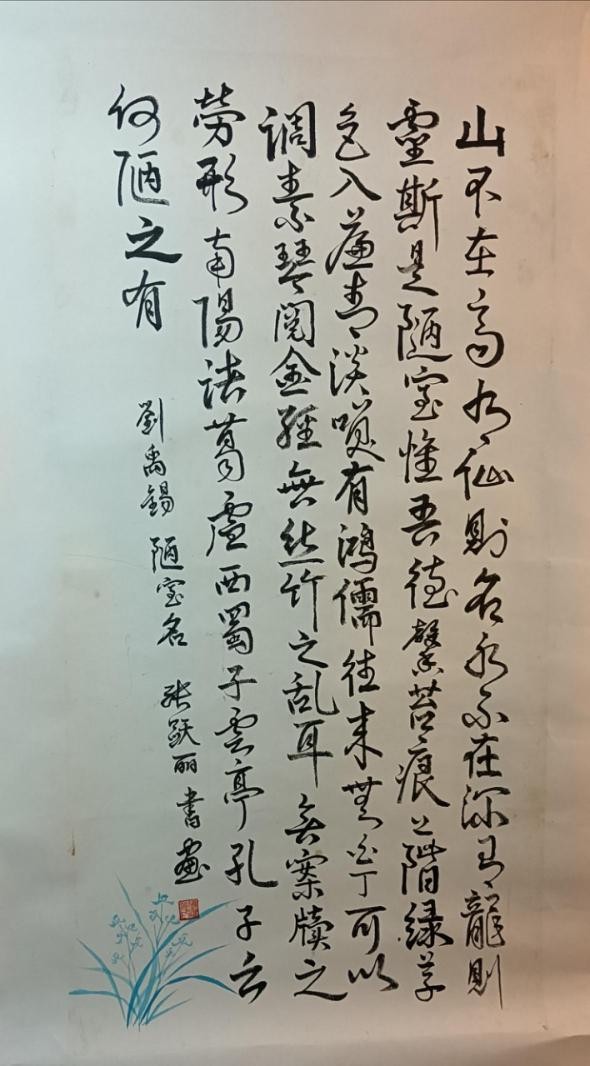 山不在高有仙则名水不在深有龍則
靈斯是陋室惟吾德馨苔痕上階緑草
色入簾青淡笑有鴻儒往来無白丁可以
调素琴阅金經無丝竹之乱耳無案牘之
劳形南陽诸葛廬西蜀子雲亭孔子云
何陋之有
劉禹錫 陋室名 张跃丽書画